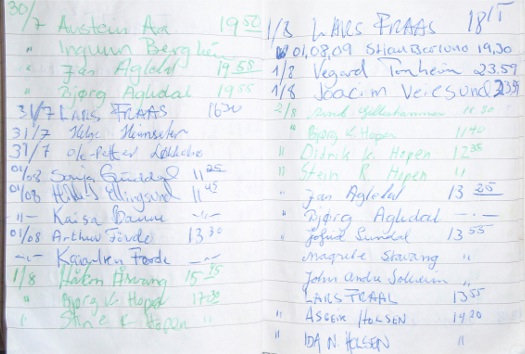 30/7 Austein Aa 19 50
" Ingunn Berg
" Jan Agledal 19 55
" Bjørg Agledal 19 55
31/7 LARS FRAAS 1630
31/7 Helge
31/7
01/08 Sonja 11 25
01/08 Ellingsund 11 45
-"- Kaisa -"-
01/08 Arthur Førde 13 30
-"- Førde -"-
1/8 Håkon Åsvang 15
" Bjørg K Hopen
" Stein R. Hopen "
1/8 LARS FRAAS 18
01.08.09 STIAN 19,30
1/8 Vegard Tonheim 23.59
1/8 Joacim Veiesund 23.59
2/8 11 30
" Bjørg K Hopen 11 40
" Didrik K. Hopen 12
" Stein R Hopen "
" Jan Agledal 13 25
" Bjørg Agledal -"-
" Jofrid Sundal 13 55
" Magnete Stavang "
John Andre Solheim "
" LARS FRAAS 13 55
" ASGEIR HOLSEN 19 20
" IDA N. HOLSEN "